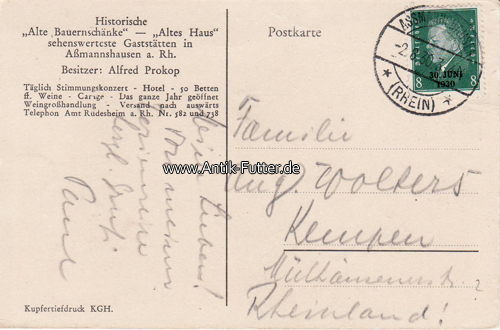 Historische
„Alte Bauernschänke" — „Altes Haus"
sehenswerteste Gaststätten in
Aßmannshausen a. Rh.
Besitzer: Alfred Prokop
Täglich Stimmungskonzert - Hotel - 50 Betten
ff. Weine - Garage - Das ganze Jahr geöffnet
Weingroßhandlung - Versand nach auswärts
Telephon Amt Rüdesheim a. Rh. Nr. 582 und 738
Postkarte
ASSM
(RHEIN)
30. JUNI
1930
8 8
Lieben!
Paul
Familie
Aug. Wolters
Kempen
Mülhausenerstr.
Rheinland!
www.Antik-Futter.de
Kupfertiefdruck KGH.